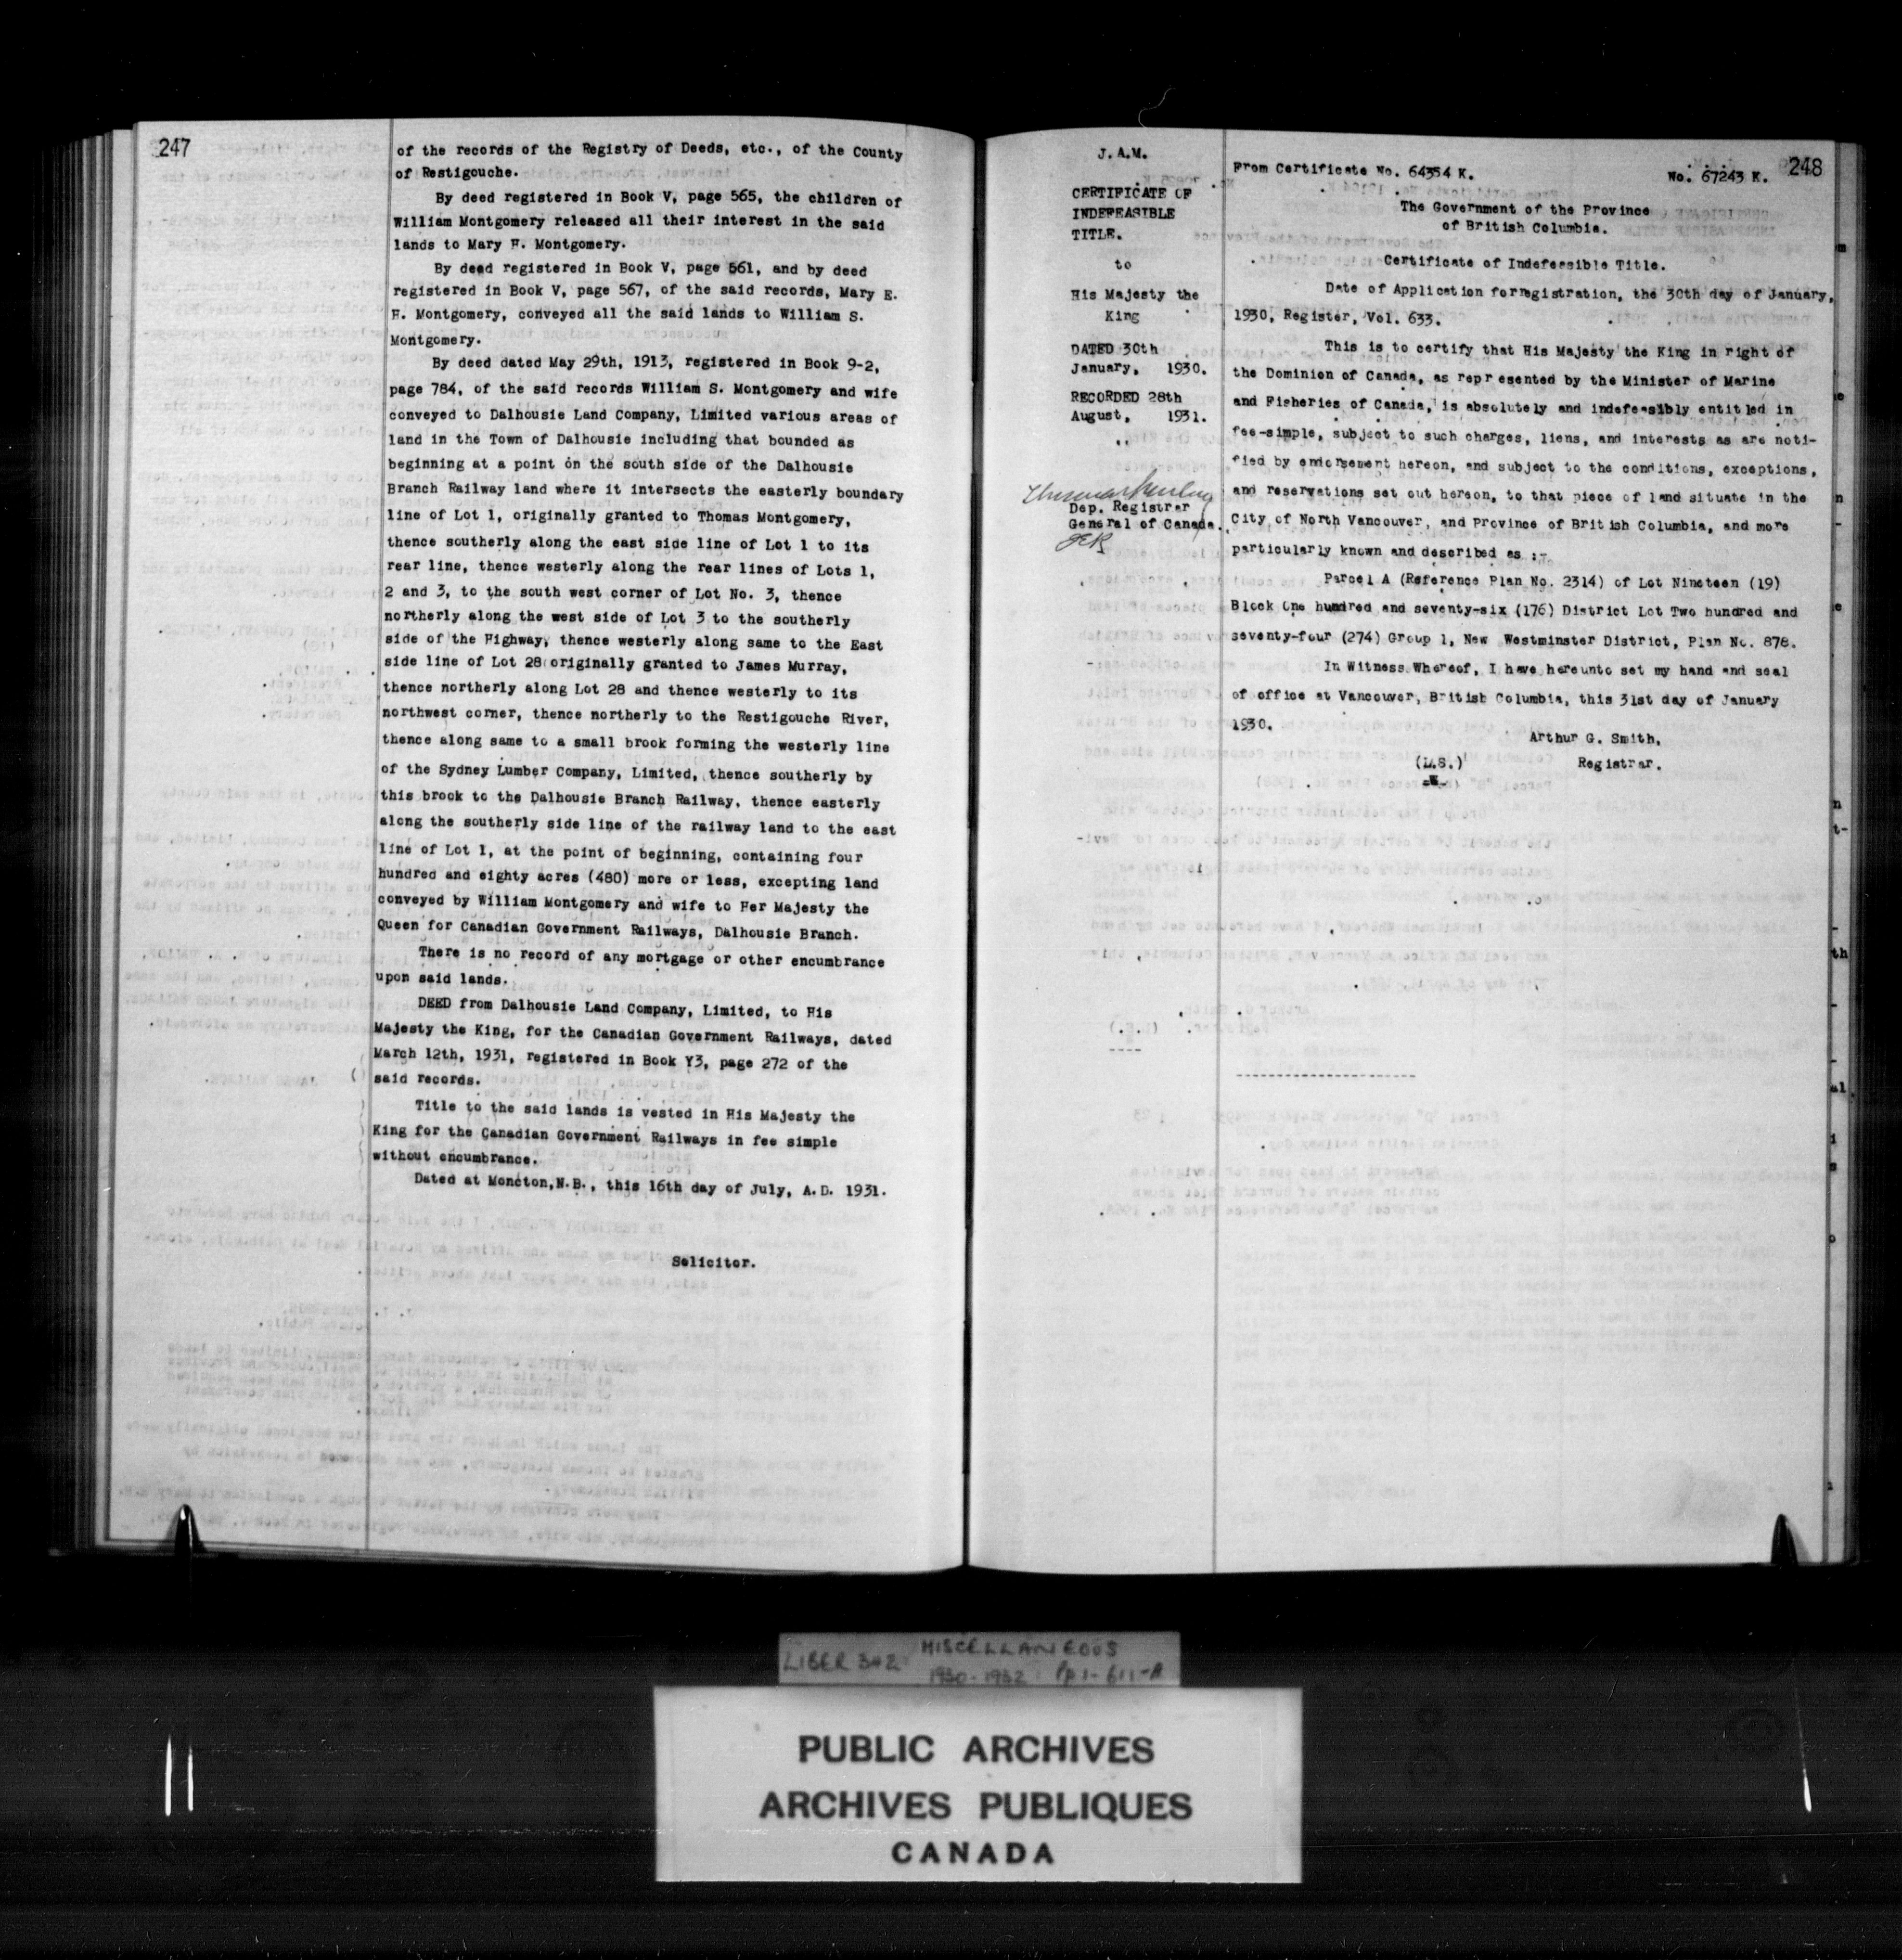 247
of the records of the Registry of Deeds, etc., of the County
of Restigouche.
By deed registered in Book V, page 565, the children of
William Montgomery released all their interest in the said
lands to Mary H. Montgomery.
By deed registered in Book V, page 561, and by deed
registered in Book V, page 567, of the said records, Mary E.
H. Montgomery, conveyed all the said lands to William S.
Montgomery.
By deed dated May 29th, 1913, registered in Book 9-2,
page 784, of the said records William S. Montgomery and wife
conveyed to Dalhousie Land Company, Limited various areas of
land in the Town of Dalhousie including that bounded as
beginning at a point on the south side of the Dalhousie
Branch Railway land where it intersects the easterly boundary
line of Lot 1, originally granted to Thomas Montgomery,
thence southerly along the east side line of Lot 1 to its
rear line, thence westerly along the rear lines of Lots 1,
2 and 3, to the south west corner of Lot No. 3, thence
northerly along the west side of Lot 3 to the southerly
side of the Highway, thence westerly along same to the East
side line of Lot 28 originally granted to James Murray,
thence northerly along Lot 28 and thence westerly to its
northwest corner, thence northerly to the Restigouche River,
thence along same to a small brook forming the westerly line
of the Sydney Lumber Company, Limited, thence southerly by
this brook to the Dalhousie Branch Railway, thence easterly
along the southerly side line of the railway land to the east
line of Lot 1, at the point of beginning, containing four
hundred and eighty acres (480) more or less, excepting land
conveyed by William Montgomery and wife to Her Majesty the
Queen for Canadian Government Railways, Dalhousie Branch.
There is no record of any mortgage or other encumbrance
upon said lands.
DEED from Dalhousie Land Company, Limited, to His
Majesty the King, for the Canadian Government Railways, dated
March 12th, 1931, registered in Book Y3, page 272 of the
said records.
Title to the said lands is vested in His Majesty the
King for the Canadian Government Railways in fee simple
without encumbrance.
Dated at Moncton, N.B., this 16th day of July, A.D. 1931.
Solicitor.
248
J. A.M.
CERTIFICATE OF
INDEFEASIBLE
TITLE.
to
His Majesty the
King
DATED 30th
January, 1930.
RECORDED 28th
August, 1931.
Dep. Registrar
General of Canada.
From Certificate No. 64354 K.
No. 67243 K.
The Government of the Province
of British Columbia.
Certificate of Indefeasible Title.
Date of Application for registration, the 30th day of January,
1930, Register, Vol. 633.
This is to certify that His Majesty the King in right of
the Dominion of Canada, as represented by the Minister of Marine
and Fisheries of Canada, is absolutely and indefeasibly entitled in
fee-simple, subject to such charges, liens, and interests as are noti-
fied by endorsement hereon, and subject to the conditions, exceptions,
and reservations set out hereon, to that piece of land situate in the
City of North Vancouver, and Province of British Columbia, and more
particularly known and described as :-
Parcel A (Reference Plan No. 2314) of Lot Nineteen (19)
Block One hundred and seventy-six (176) District Lot Two hundred and
seventy-four (274) Group 1, New Westminster District, Plan No. 878.
In Witness Whereof, I have hereunto set my hand and seal
of office at Vancouver, British Columbia, this 31st day of January
1930.
Arthur G. Smith,
(L.S.) Registrar.
LIBER 342 MISCELLANEOUS
1930-1932 Pp 1-611-A
PUBLIC ARCHIVES
ARCHIVES PUBLIQUES
CANADA